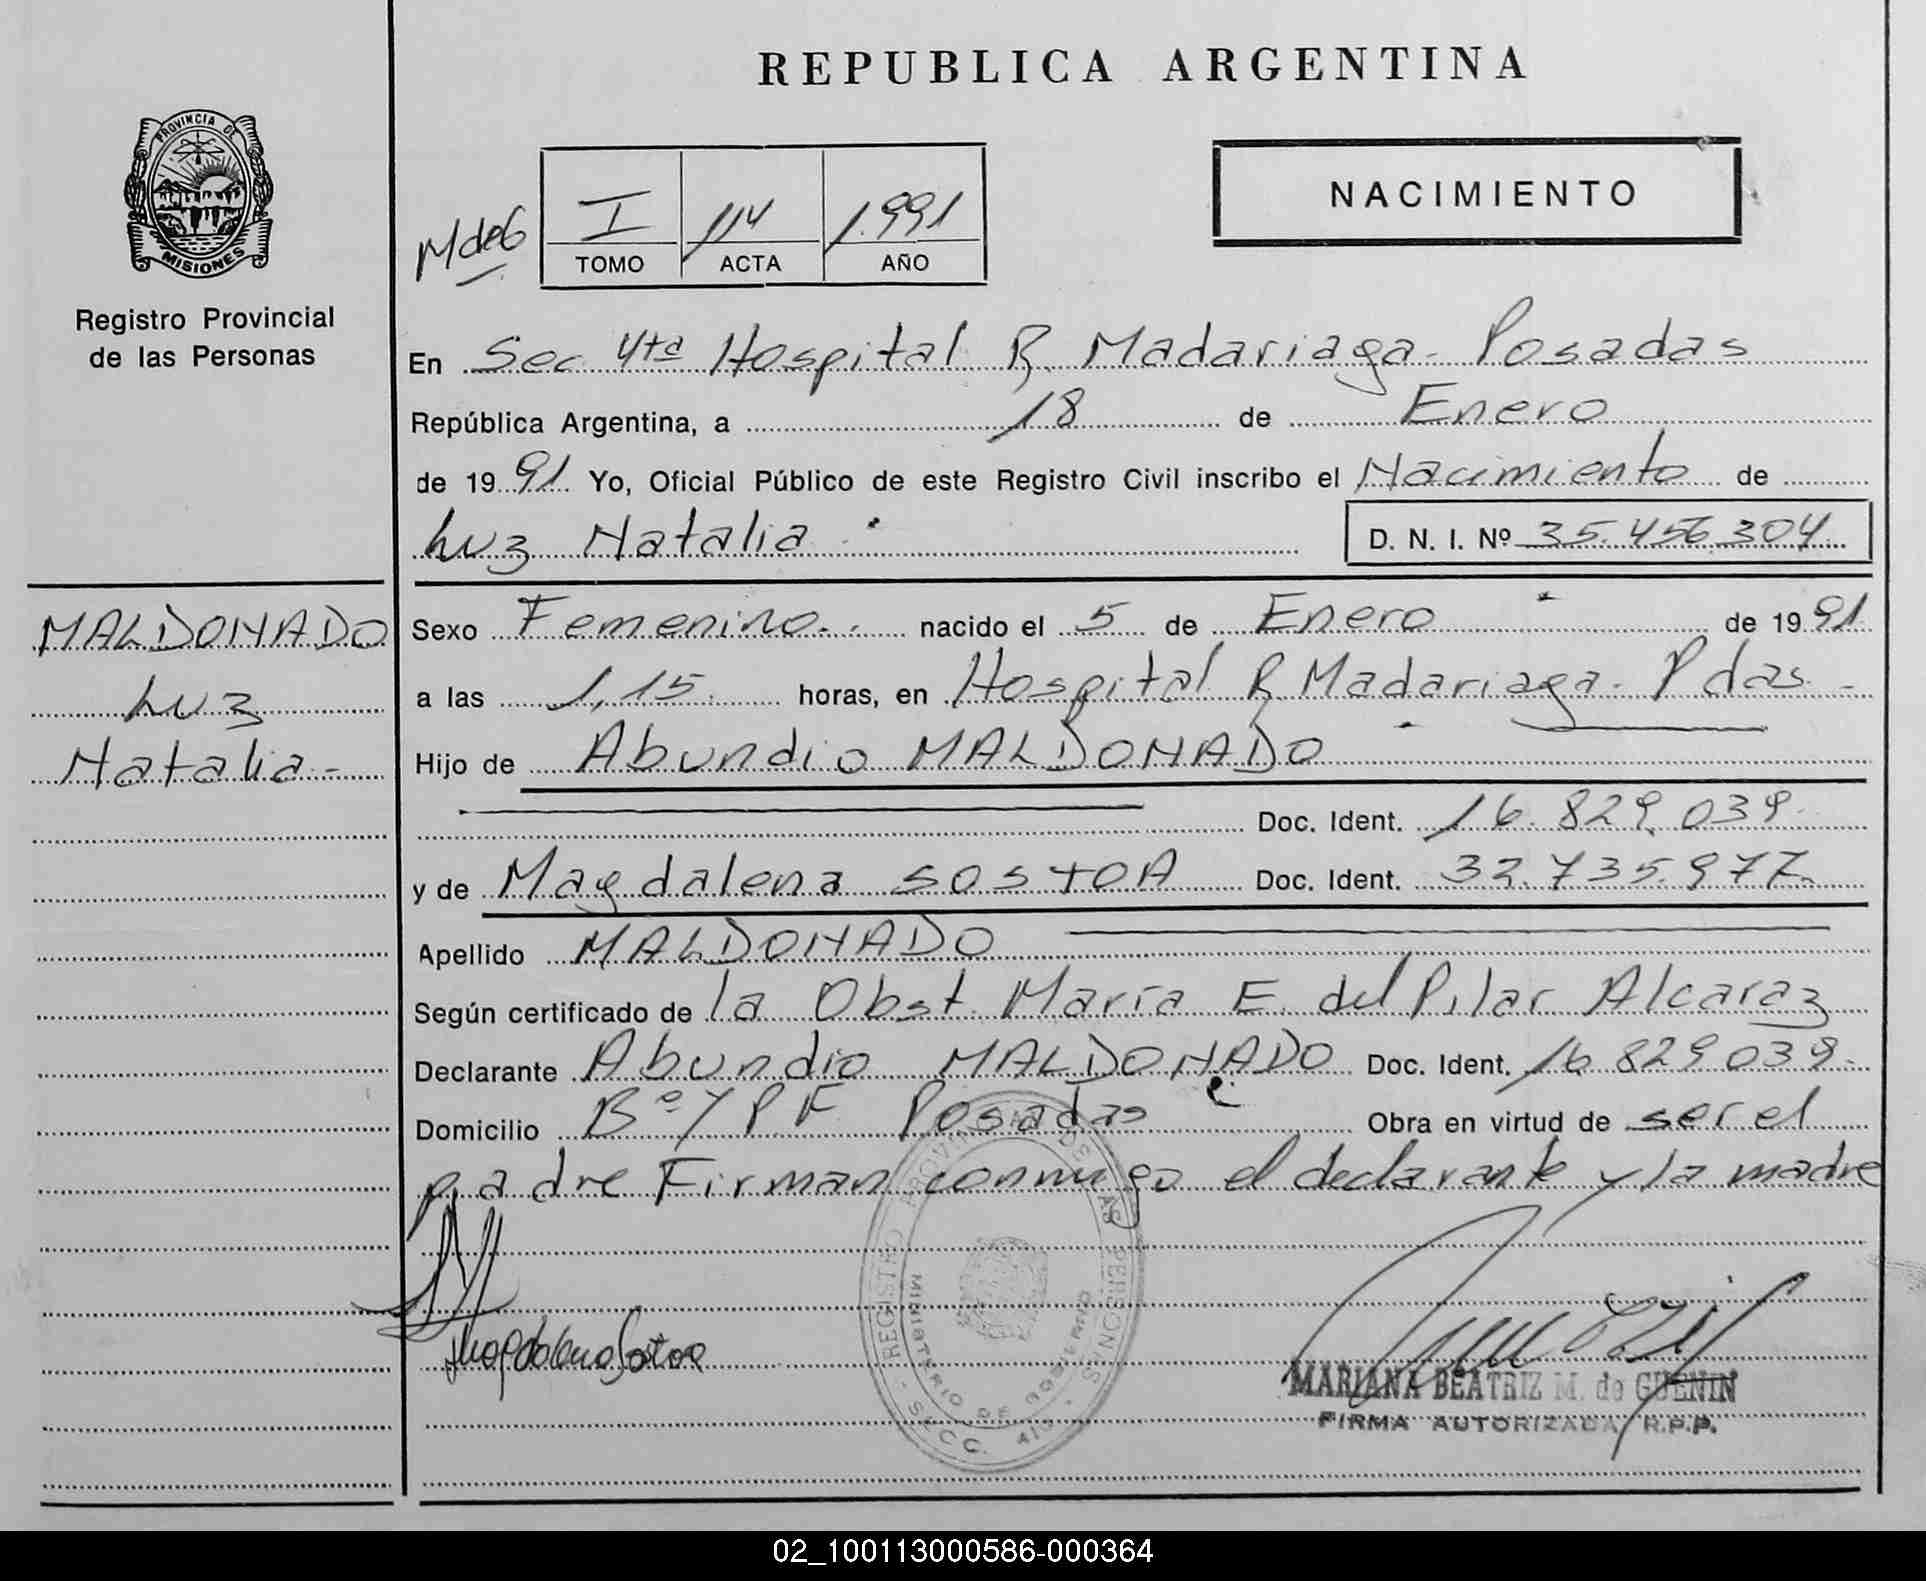 REPUBLICA ARGENTINA
PROVINCIA DE
MISIONES
Registro Provincial
de las Personas
MdeG
I 114 1.991
TOMO ACTA AÑO
NACIMIENTO
En Sec 4ta Hospital R. Madariaga - Posadas
República Argentina, a 18 de Enero
de 1991 Yo, Oficial Público de este Registro Civil inscribo el Nacimiento de
Luz Natalia
D. N. I. Nº 35.456.304
MALDONADO
Luz
Natalia -
Sexo Femenino nacido el 5 de Enero de 1991
a las 1,15 horas, en Hospital R Madariaga - Pdas -
Hijo de Abundio MALDONADO
Doc. Ident. 16.829.039
y de Magdalena SOSTOA Doc. Ident. 32.735.977
Apellido MALDONADO
Según certificado de la Obst. María E. del Pilar Alcaraz
Declarante Abundio MALDONADO Doc. Ident. 16.829.039
Domicilio Bº YPF Posadas Obra en virtud de ser el
padre Firman conmigo el declarante y la madre
Magdalena Sostoa
REGISTRO PROVINCIAL DE LAS PERSONAS
MINISTERIO DE GOBIERNO
SECC. 4TO
MARIANA BEATRIZ M. de GUENIN
FIRMA AUTORIZADA R.P.P.
02_100113000586-000364